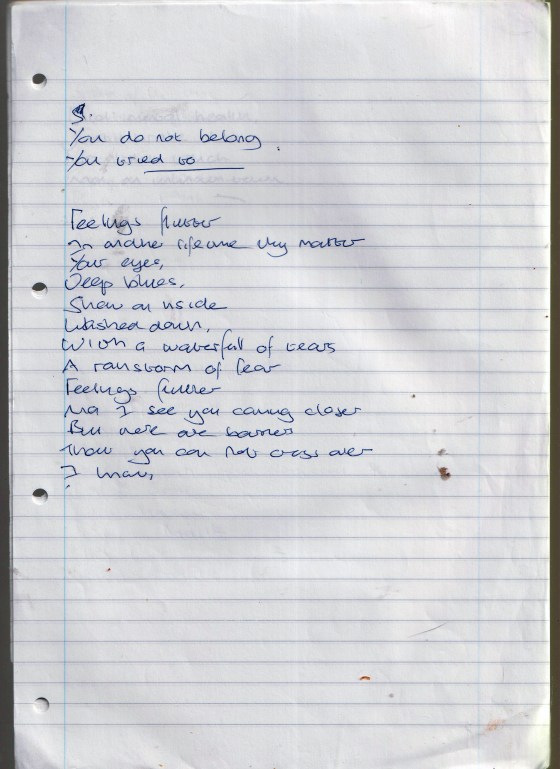 You do not belong
You tried to
Feelings flutter
In another lifetime they matter
Your eyes,
Deep blues,
Show an inside
Washed down,
With a waterfall of tears
A rainstorm of fear
Feelings flutter
I see you coming closer
But there are barriers
you can not cross over
I know,